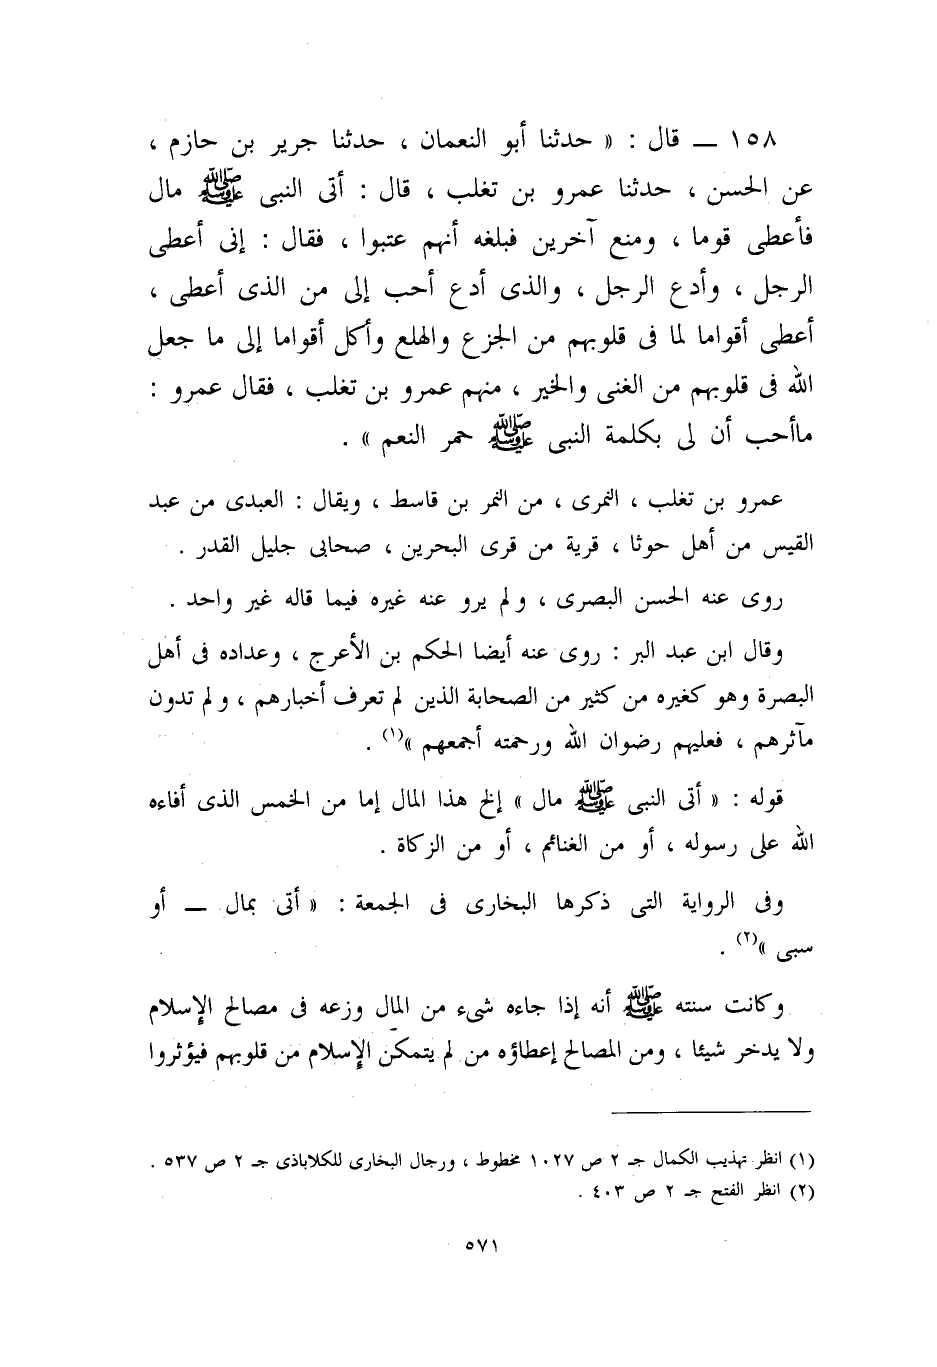 ١٥٨ ـ قال : « حدثنا أبو النعمان ، حدثنا جرير بن حازم ،
عن الحسن ، حدثنا عمرو بن تغلب ، قال : أتى النبى ﷺ مال
فأعطى قوما ، ومنع آخرين فبلغه أنهم عتبوا ، فقال : إنى أعطى
الرجل ، وأدع الرجل ، والذى أدع أحب إلى من الذى أعطى ،
أعطى أقواما لما فى قلوبهم من الجزع والهلع وأكل أقواما إلى ما جعل
الله فى قلوبهم من الغنى والخير ، منهم عمرو بن تغلب ، فقال عمرو :
ماأحب أن لى بكلمة النبى ﷺ حمر النعم » .
عمرو بن تغلب ، النمرى ، من النمر بن قاسط ، ويقال : العبدى من عبد
القيس من أهل حوثا ، قرية من قرى البحرين ، صحابى جليل القدر .
روى عنه الحسن البصرى ، ولم يرو عنه غيره فيما قاله غير واحد .
وقال ابن عبد البر : روى عنه أيضا الحكم بن الأعرج ، وعداده فى أهل
البصرة وهو كغيره من كثير من الصحابة الذين لم تعرف أخبارهم ، ولم تدون
مآثرهم ، فعليهم رضوان الله ورحمته أجمعهم »(١) .
قوله : « أتى النبى ﷺ مال » إلخ هذا المال إما من الخمس الذى أفاءه
الله على رسوله ، أو من الغنائم ، أو من الزكاة .
وفى الرواية التى ذكرها البخارى فى الجمعة : « أتى بمال ـ أو
سبى »(٢) .
وكانت سنته ﷺ أنه إذا جاءه شىء من المال وزعه فى مصالح الإسلام
ولا يدخر شيئا ، ومن المصالح إعطاؤه من لم يتمكن الإسلام من قلوبهم فيؤثروا
(١) انظر تهذيب الكمال جـ ٢ ص ١٠٢٧ مخطوط ، ورجال البخارى للكلاباذى جـ ٢ ص ٥٣٧ .
(٢) انظر الفتح جـ ٢ ص ٤٠٣ .
٥٧١